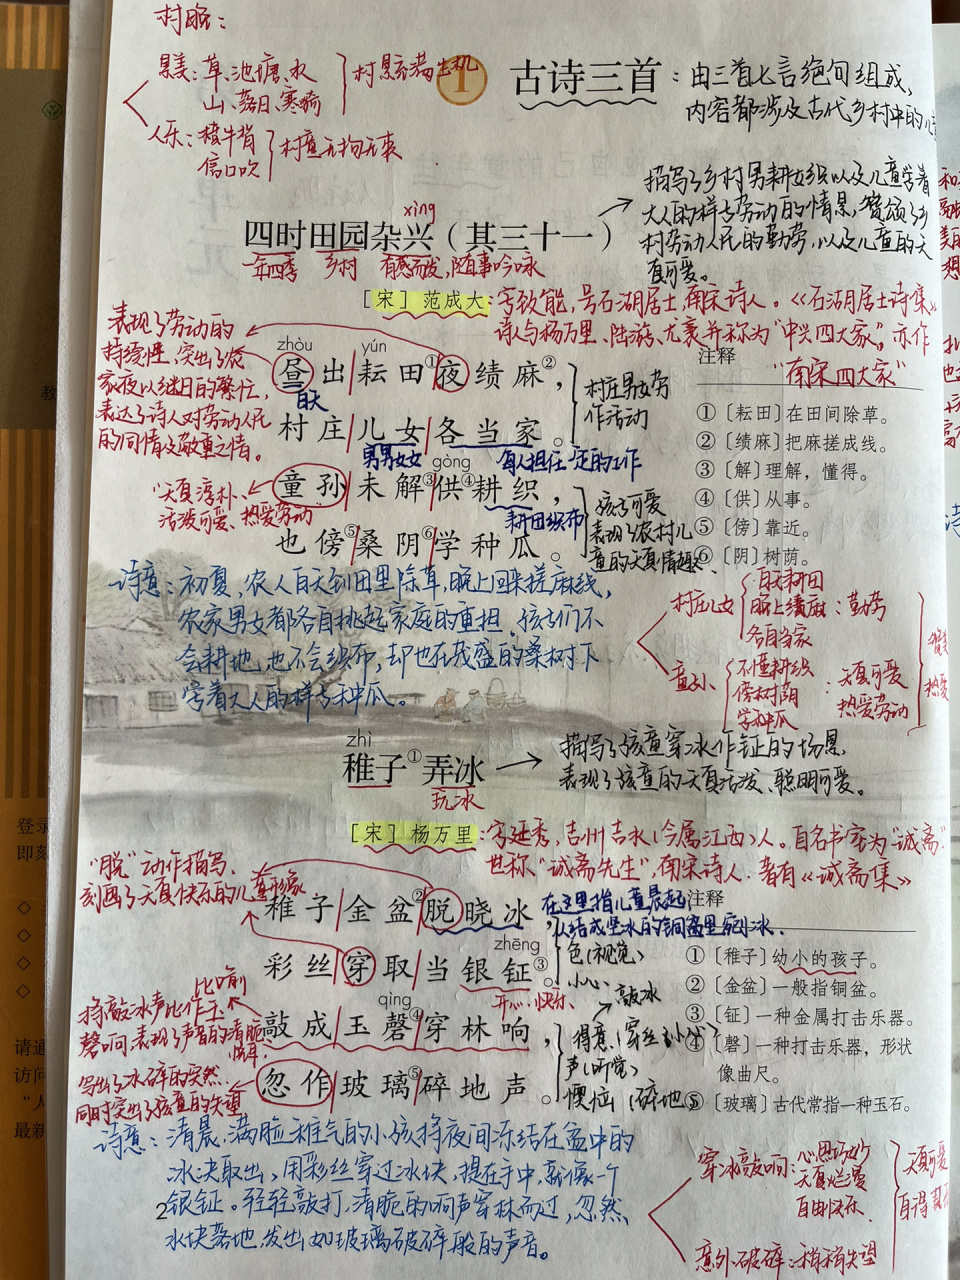 村晚：
景美：草、池塘、水
山、落日、寒漪
村景充满生机
人乐：横牛背
信口吹
村童无拘无束
1 古诗三首：由三首七言绝句组成，
内容都涉及古代乡村中的儿
描写了乡村男耕女织以及儿童学着
大人的样子劳动的情景，赞颂了乡
村劳动人民的勤劳，以及儿童的天
真可爱。
xìng
四时田园杂兴（其三十一）
一年四季 乡村 有感而发，随事吟咏
［宋］范成大：字致能，号石湖居士，南宋诗人。《石湖居士诗集》
诗人与杨万里、陆游、尤袤并称为“中兴四大家”，亦作
“南宋四大家”
表现了劳动的
持续性、突出了农
家夜以继日的繁忙，
表达了诗人对劳动人民
的同情及敬重之情。
zhòu yún
昼出耘田①夜绩麻②，
白天
村庄儿女各当家。
男男女女 每人担任一定的工作
村庄男女劳
作活动
gòng
童孙未解③供④耕织，
耕田织布
也傍⑤桑阴⑥学种瓜。
天真淳朴、
活泼可爱、热爱劳动
孩子可爱
表现了农村儿
童的天真情趣
注释
①〔耘田〕在田间除草。
②〔绩麻〕把麻搓成线。
③〔解〕理解，懂得。
④〔供〕从事。
⑤〔傍〕靠近。
⑥〔阴〕树荫。
诗意：初夏，农人白天到田里除草，晚上回来搓麻线，
农家男女都各自挑起家庭的重担。孩子们不
会耕地，也不会织布，却也在茂盛的桑树下
学着大人的样子种瓜。
村庄儿女
白天耕田
晚上绩麻：勤劳
各自当家
童孙
不懂耕织
傍树阴：天真可爱
学种瓜 热爱劳动
热爱
zhì
稚子①弄冰
玩冰
描写了孩童穿冰作钲的场景，
表现了孩童的天真活泼、聪明可爱。
［宋］杨万里：字廷秀，吉州吉水（今属江西）人。自名书室为“诚斋”
世称“诚斋先生”，南宋诗人，著有《诚斋集》
“脱”动作描写，
刻画了天真快乐的儿童形象
稚子金盆②脱晓冰，
在这里指儿童晨起
从结成坚冰的铜盆里剜冰。
zhēng
彩丝穿取当银钲③。
开心、快乐
色（视觉）
小心
qìng
敲成玉磬④穿林响，
敲冰
得意（穿丝
声（听觉）
忽作玻璃⑤碎地声。
懊恼（碎地
比喻
将敲冰声比作玉
磬响，表现了声音的清脆
悦耳。
写出了冰碎的突然，
同时突出了孩童的失望
注释
①〔稚子〕幼小的孩子。
②〔金盆〕一般指铜盆。
③〔钲〕一种金属打击乐器。
④〔磬〕一种打击乐器，形状
像曲尺。
⑤〔玻璃〕古代常指一种玉石。
诗意：清晨，满脸稚气的小孩将夜间冻结在盆中的
冰块取出，用彩丝穿过冰块，提在手中，就像一个
银钲。轻轻敲打，清脆的响声穿林而过，忽然
冰块落地，发出如玻璃破碎般的声音。
穿冰敲响：心思巧妙
天真烂漫
自由快乐
天真可爱
意外破碎：稍稍失望
2
登录
即刻
请通
访问
最新